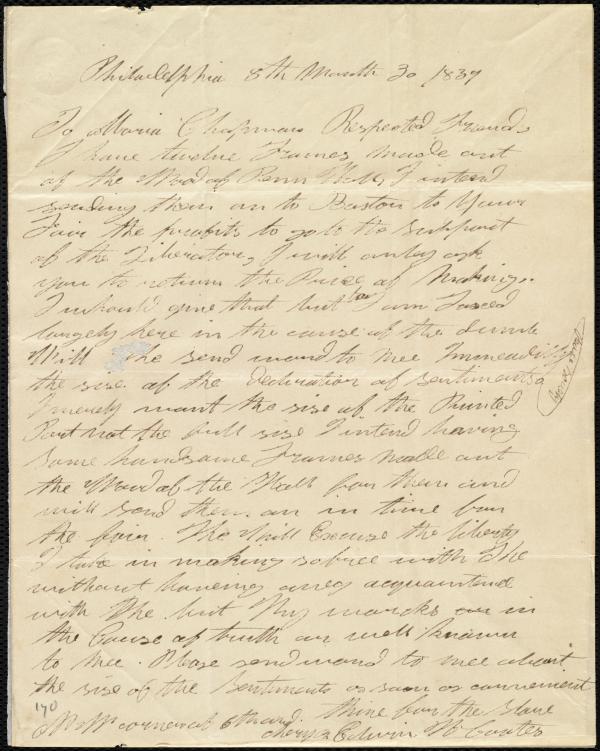 Philadelphia 8th Month 30 1839
To Maria Chapman Respected Friend
I have twelve Frames made out
of the Wood of Penn Hall, I intend
sending them on to Boston to Your
Fair the profits to go to the support
of the Liberator, I will only ask
you to return the Price of Making.
I whould give that but I am Taxed
largely here in the cause of the dumb
Will the send word to mee Immeaditly
the sise of the Decliration of sentiments
I merely want the sise of the Printed
Part not the full sise I intend having
Some handsome Frames made out
the Wood of the Hall for them and
will send them on in time for
the fair. The Will Excuse the liberty
I take in making so free with The
without haveing any acquaintend
with The but Thy works are in
the Cause of truth are well known
to Mee. Please send word to mee about
the sise of the Sentiments as soon as convenient
170 Thine for the slave
corner of 6th and Edwin H Coates